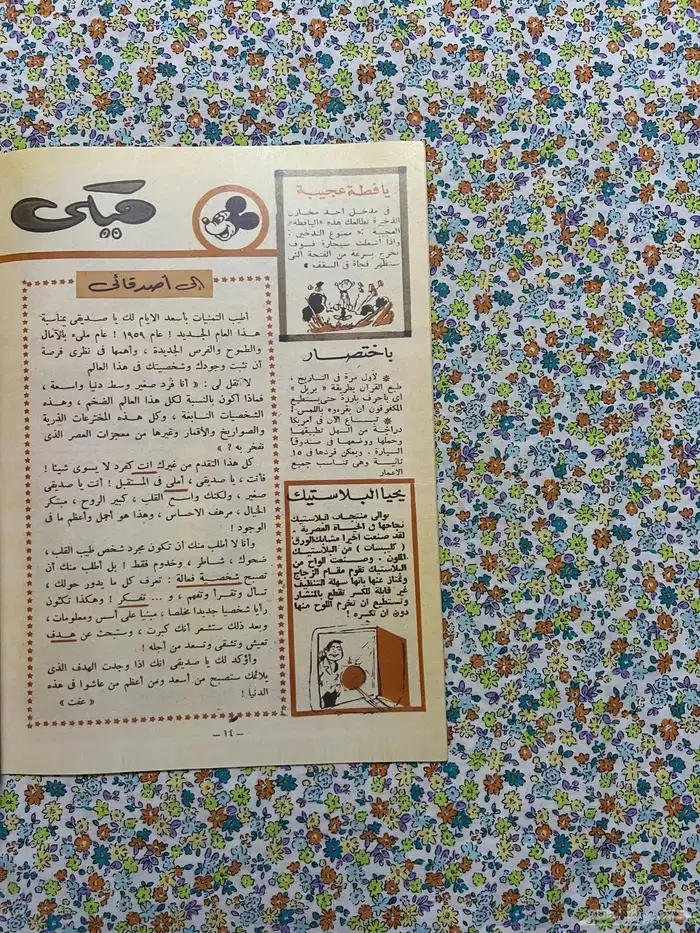 ميكى
إلى أصدقائى
أطيب التمنيات بأسعد الأيام لك يا صديقى بمناسبة
هذا العام الجديد ! عام ١٩٥٩ ! عام ملىء بالآمال
والطموح والفرص الجديدة ، وأهمها فى نظرى فرصة
أن تثبت وجودك وشخصيتك فى هذا العالم
لا تقل لى : « أنا فرد صغير وسط دنيا واسعة ،
فماذا أكون بالنسبة لكل هذا العالم الضخم ، وهذه
الشخصيات النابغة ، وكل هذه المخترعات الذرية
والصواريخ والأقمار وغيرها من معجزات العصر الذى
نفخر به ؟ »
كل هذا التقدم من غيرك أنت كفرد لا يسوى شيئا !
فأنت ، يا صديقى ، أملى فى المستقبل ! أنت يا صديقى
صغير ، ولكنك واسع القلب ، كبير الروح ، مبتكر
الخيال ، مرهف الاحساس ، وهذا هو أجمل وأعظم ما فى
الوجود !
وأنا لا أطلب منك أن تكون مجرد شخص طيب القلب ،
ضحوك ، شاطر ، وخدوم فقط ! بل أطلب منك أن
تصبح شخصية فعالة : تعرف كل ما يدور حولك ،
تسأل وتقرأ وتفهم ، و ... تفكر ! وهكذا تكون
رأيا شخصيا جديدا مخلصا ، مبنيا على أسس ومعلومات ،
وبعد ذلك ستشعر أنك كبرت ، وستبحث عن هدف
تعيش وتشقى وتسعد من أجله !
وأؤكد لك يا صديقى أنك اذا وجدت الهدف الذى
يلائمك ستصبح من أسعد ومن أعظم من عاشوا فى هذه
الدنيا !
« عفت »
يافطة عجيبة
فى مدخل أحد مخازن
الذخيرة تطالعك هذه « اليافطة »
العجيبة : « ممنوع التدخين !
واذا أشعلت سيجارة فسوف
تخرج بسرعة من الفتحة التى
ستظهر فجأة فى السقف »
باختصار
لأول مرة فى التاريخ ،
طبع القرآن بطريقة « بريل »
أى بأحرف بارزة حتى يستطيع
المكفوفون أن يقرءوه باللمس !
تباع الآن فى أمريكا
دراجة من السهل تطبيقها
وحملها ووضعها فى صندوق
السيارة ، ويمكن فردها فى ١٥
ثانية وهى تناسب جميع
الأعمار
يحيا البلاستيك
توالى منتجات البلاستيك
نجاحها فى الحياة العصرية .
لقد صنعت أخيرا مشابك الورق
( كليبسات ) من البلاستيك
الملون . وصنعت ألواح من
البلاستيك تقوم مقام الزجاج
وتمتاز عنها بأنها سهلة التنظيف
غير قابلة للكسر تقطع بالمنشار
وتستطيع أن تخرم اللوح منها
دون أن تكسره !
— ١٤ —